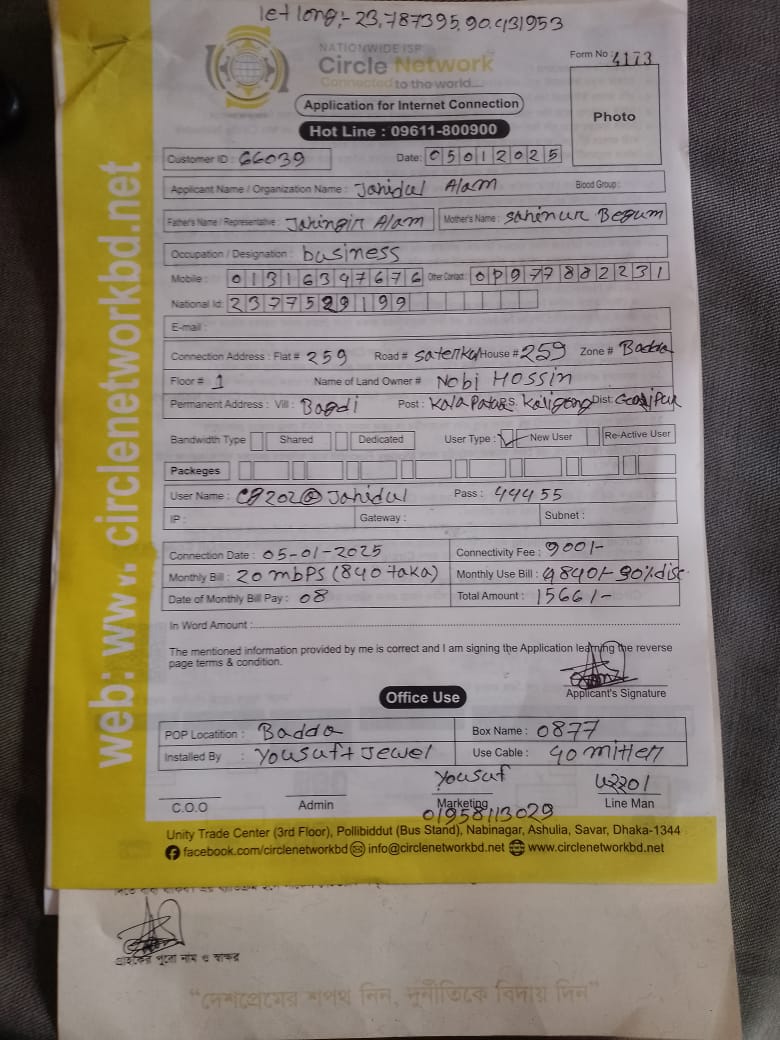 let long:- 23.787395, 90.431953
NATIONWIDE ISP
Circle Network
Connected to the world....
Form No : 4173
Application for Internet Connection
Photo
Hot Line : 09611-800900
Customer ID : 66039 Date: 05012025
Applicant Name / Organization Name : Jahidul Alam Blood Group :
Father's Name / Representative : Jahingir Alam Mother's Name : Sahinur Begum
Occupation / Designation : business
Mobile : 01316397676 Other Contact : 01977882231
National Id: 2377529199
E-mail :
Connection Address : Flat # 259 Road # House # 259 Zone # Badda
Floor # 1 Name of Land Owner # Nobi HOSSin
Permanent Address : Vill : Bagdi Post : P.S. Kaligong Dist: Gazipur
Bandwidth Type Shared Dedicated User Type : New User Re-Active User
Packeges
User Name : @Jahidul Pass : 44455
IP : Gateway : Subnet :
Connection Date : 05-01-2025 Connectivity Fee : 900/-
Monthly Bill : 20 mbps (840 taka) Monthly Use Bill : 90% disc
Date of Monthly Bill Pay : 08 Total Amount : 1566/-
In Word Amount :
The mentioned information provided by me is correct and I am signing the Application learning the reverse
page terms & condition.
Applicant's Signature
Office Use
POP Locatition : Badda Box Name : 0877
Installed By : Yousuf + Jewel Use Cable : 90 mitter
Yousuf
C.O.O Admin Marketing Line Man
01958113029
Unity Trade Center (3rd Floor), Pollibiddut (Bus Stand), Nabinagar, Ashulia, Savar, Dhaka-1344
facebook.com/circlenetworkbd info@circlenetworkbd.net www.circlenetworkbd.net
web: www. circlenetworkbd.net
গ্রাহকের পুরো নাম ও স্বাক্ষর
“দেশপ্রেমের শপথ নিন, দুর্নীতিকে বিদায় দিন”